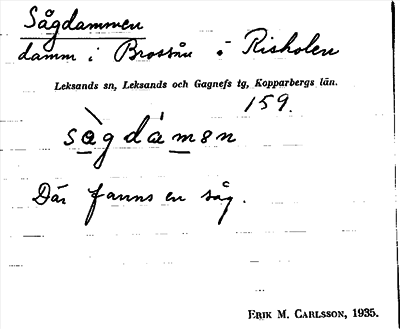 Sågdammen
damm i Brossån i Risholen
Leksands sn, Leksands och Gagnefs tg, Kopparbergs län.
159.
sàgdámən
Där fanns en såg.
ERIK M. CARLSSON, 1935.